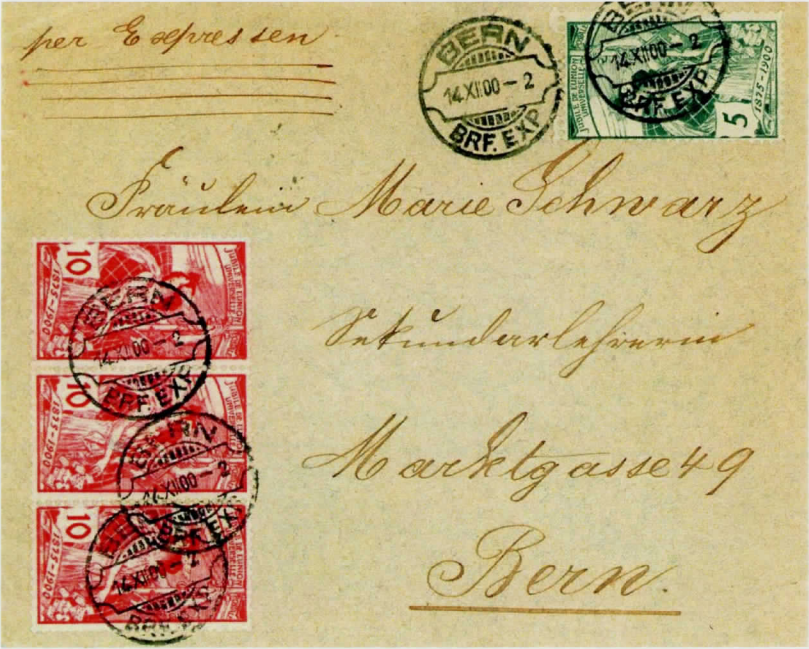 per Expressen
BERN
14.XII.00-2
BRF. EXP.
BERN
14.XII.00-2
BRF. EXP.
JUBILÉ DE L'UNION
UNIVERSELLE
5
1875-1900
Fräulein Marie Schwarz
Sekundarlehrerin
Marktgasse 49
Bern.
10
1875-1900
JUBILÉ DE L'UNION
UNIVERSELLE
BERN
14.XII.00-2
BRF. EXP.
10
1875-1900
JUBILÉ DE L'UNION
BERN
14.XII.00-2
BRF. EXP.
10
1875-1900
BERN
14.XII.00-2
BRF. EXP.